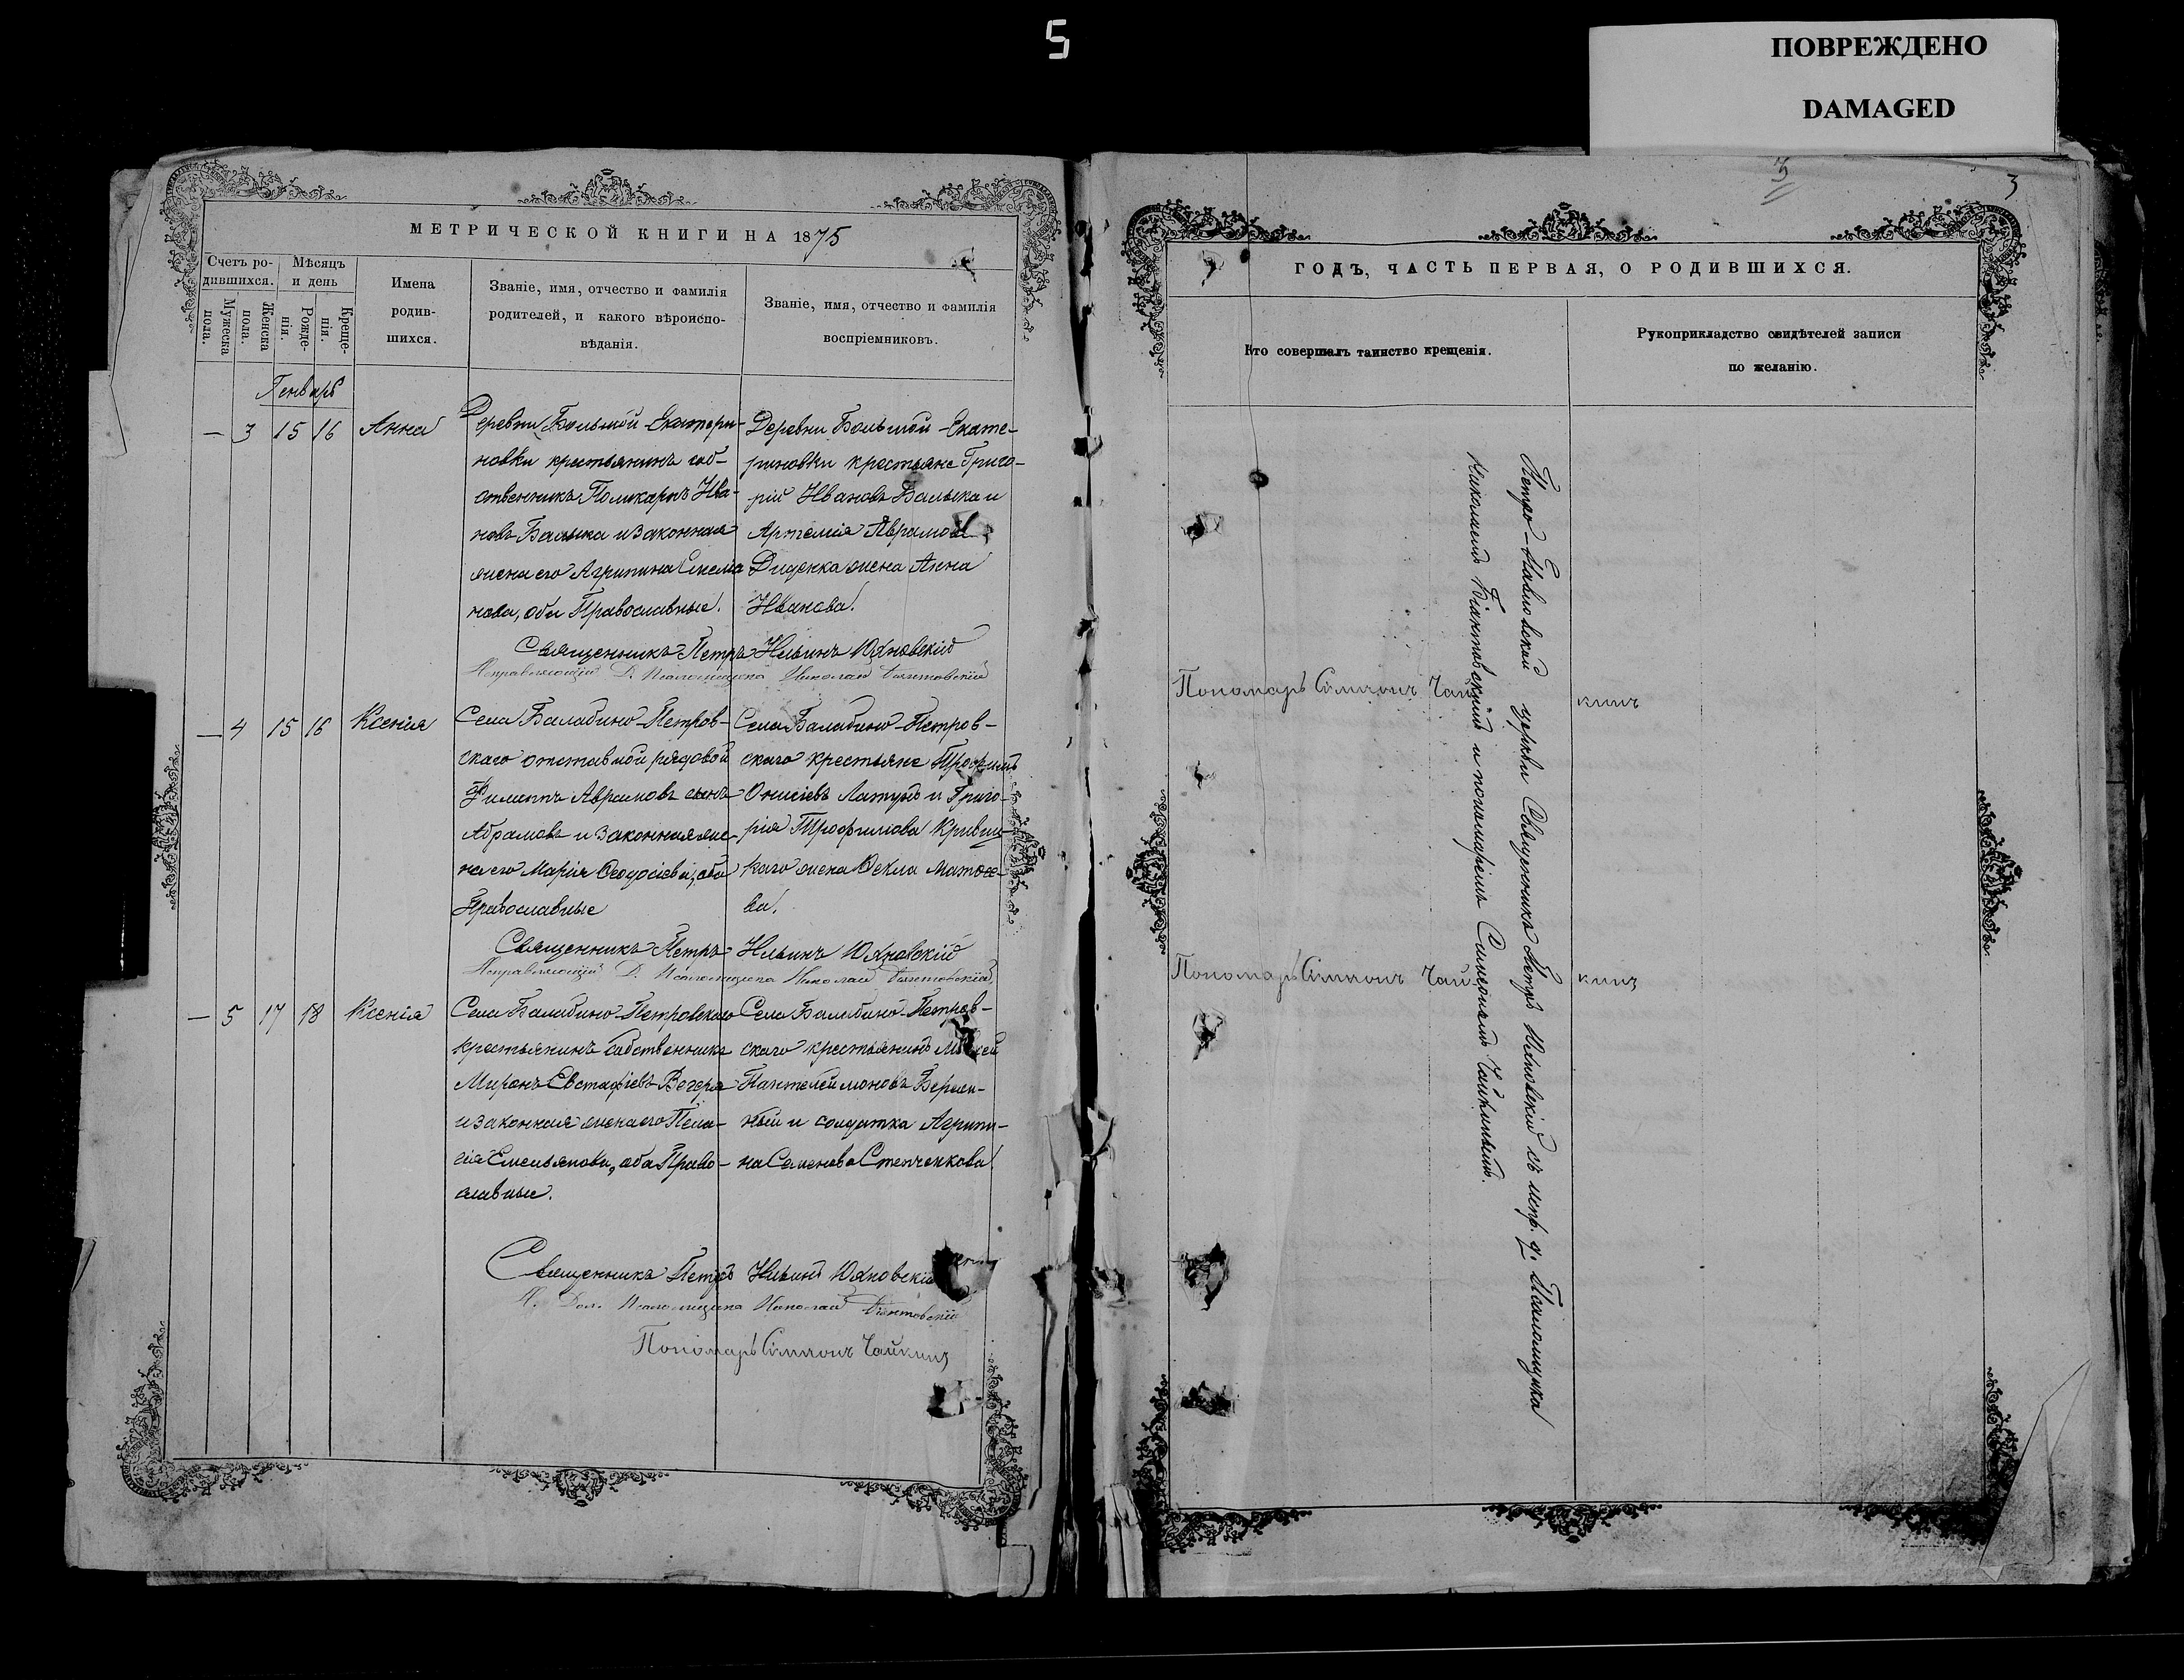 5
ПОВРЕЖДЕНО
DAMAGED
МЕТРИЧЕСКОЙ КНИГИ НА 1875
Счетъ ро-
дившихся.
Мѣсяцъ
и день
Мужеска
пола.
Женска
пола.
Рожде-
нія.
Креще-
нія.
Имена
родив-
шихся.
Званіе, имя, отчество и фамилія
родителей, и какого вѣроиспо-
вѣданія.
Званіе, имя, отчество и фамилія
воспріемниковъ.
Генварь
— 3 15 16 Анна
Деревни Большой-Екатери-
новки крестьянинъ соб-
ственникъ Поликарпъ Ива-
новъ Балыка и законная
жена его Агрипина
нова, оба Православные.
Деревни Большой-Екате-
риновки крестьяне Григо-
рій Ивановъ Балыка и
Артемія Аврамова
Диденка жена Анна
Иванова.
Священникъ Петръ Ильинъ Юхновскій
Исправляющій Д. Псаломщика Николай
— 4 15 16 Ксенія
Села Балабино-Петров-
скаго отставной рядовой
Филиппъ Аврамовъ сынъ
Абрамовъ и законная же-
на его Марія Ѳеодосіева, оба
Православные
Села Балабино-Петров-
скаго крестьяне Трофимъ
Онисіевъ и Григо-
рія Трофимова
каго жена Ѳекла
ва.
Священникъ Петръ Ильинъ Юхновскій
Исправляющій Д. Псаломщика Николай
— 5 17 18 Ксенія
Села Балабино-Петровскаго
крестьянинъ собственникъ
Миронъ Евстафіевъ Вечеря
и законная жена его Пела-
гія Емельянова, оба Право-
славные.
Села Балабино-Петров-
скаго крестьянинъ
Пантелеймоновъ
ный и солдатка Агрипи-
на Семенова Степченкова.
Священникъ Петръ Ильинъ Юхновскій
И. Дол. Псаломщика Николай
Пономарь Симеонъ Чайкинъ
3
ГОДЪ, ЧАСТЬ ПЕРВАЯ, О РОДИВШИХСЯ.
Кто совершалъ таинство крещенія.
Рукоприкладство свидѣтелей записи
по желанію.
Петро-Павловской церкви Священникъ Петръ Юхновскій съ испр. д. Псаломщика
Николаемъ и пономаремъ Симеономъ Чайкинымъ.
Пономарь Симеонъ Чайкинъ
Пономарь Симеонъ Чайкинъ